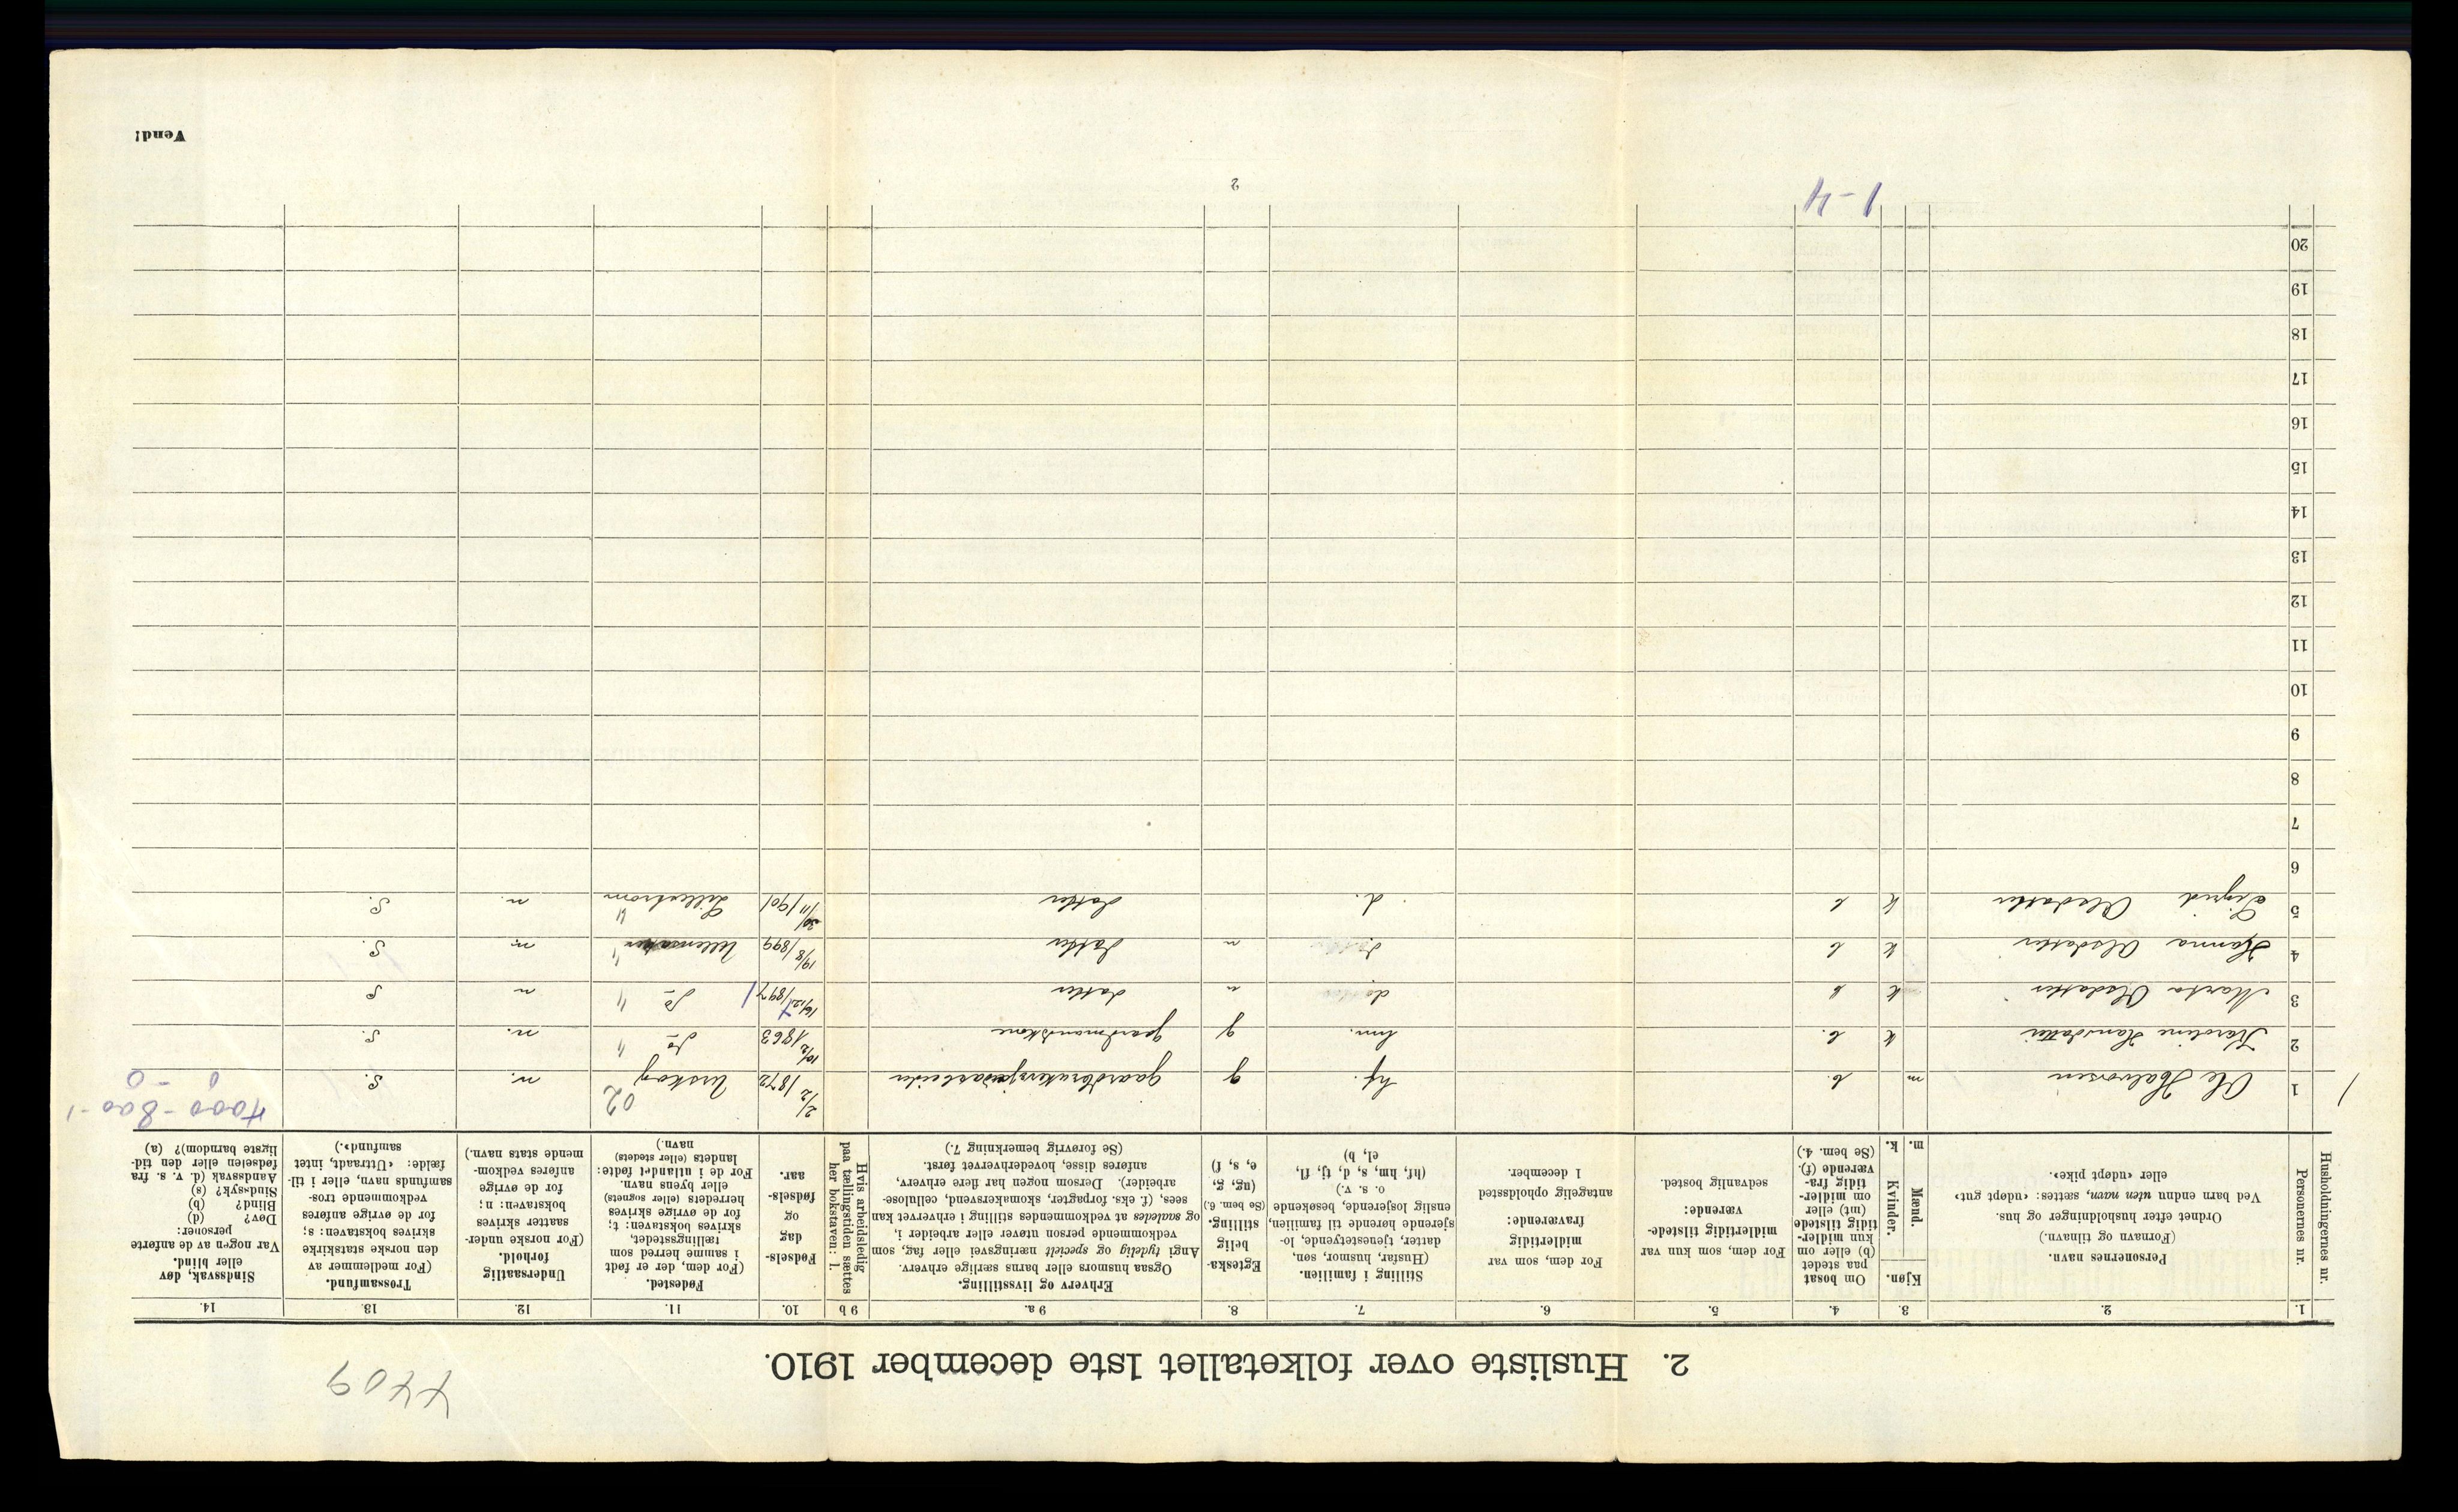 7409
2. Husliste over folketallet 1ste december 1910.
1. 2. 3. 4. 5. 6. 7. 8. 9 a. 9 b 10. 11. 12. 13. 14.
Husholdningernes nr.
Personernes nr.
Personernes navn.
(Fornavn og tilnavn.)
Ordnet efter husholdninger og hus.
Ved barn endnu uten navn, sættes: «udøpt gut»
eller «udøpt pike».
Kjøn.
Mænd.
Kvinder.
m. k.
Om bosat
paa stedet
(b) eller om
kun midler-
tidig tilstede
(mt) eller
om midler-
tidig fra-
værende (f).
(Se bem. 4.)
For dem, som kun var
midlertidig tilstede-
værende:
sedvanlig bosted.
For dem, som var
midlertidig
fraværende:
antagelig opholdssted
1 december.
Stilling i familien.
(Husfar, husmor, søn,
datter, tjenestetyende, lo-
sjerende hørende til familien,
enslig losjerende, besøkende
o. s. v.)
(hf, hm, s, d, tj, fl,
el, b)
Egteska-
belig
stilling.
(Se bem. 6.)
(ug, g,
e, s, f)
Erhverv og livsstilling.
Ogsaa husmors eller barns særlige erhverv.
Angi tydelig og specielt næringsvei eller fag, som
vedkommende person utøver eller arbeider i,
og saaledes at vedkommendes stilling i erhvervet kan
sees, (f. eks. forpagter, skomakersvend, cellulose-
arbeider). Dersom nogen har flere erhverv,
anføres disse, hovederhvervet først.
(Se forøvrig bemerkning 7.)
Hvis arbeidsledig
paa tællingstiden sættes
her bokstaven: l.
Fødsels-
dag
og
fødsels-
aar.
Fødested.
(For dem, der er født
i samme herred som
tællingsstedet,
skrives bokstaven: t;
for de øvrige skrives
herredets (eller sognets)
eller byens navn.
For de i utlandet fødte:
landets (eller stedets)
navn.)
Undersaatlig
forhold.
(For norske under-
saatter skrives
bokstaven: n;
for de øvrige
anføres vedkom-
mende stats navn.)
Trossamfund.
(For medlemmer av
den norske statskirke
skrives bokstaven: s;
for de øvrige anføres
vedkommende tros-
samfunds navn, eller i til-
fælde: «Uttraadt, intet
samfund».)
Sindssvak, døv
eller blind.
Var nogen av de anførte
personer:
Døv? (d)
Blind? (b)
Sindssyk? (s)
Aandssvak (d. v. s. fra
fødselen eller den tid-
ligste barndom)? (a)
02 4000-800-1
1 1 Ole Halvorsen m b. hf. g gaardbruker 2/2 1872 Urskog n. S. 0 - 0
2 Karoline Hansdatter k b. hm. g gaardmandskone 10/2 1863 do " n. S.
3 Marta Olsdatter k b d u datter 16/12 1897 do " n S
4 Hanna Olsdatter k b d u datter 19/8 1899 Ullensaker " n. S.
5 Sigrid Olsdatter k b d. datter 30/11 1901 Lillestrøm " n. S.
6
7
8
9
10
11
12
13
14
15
16
17
18
19
20
1-4
2
Vend!